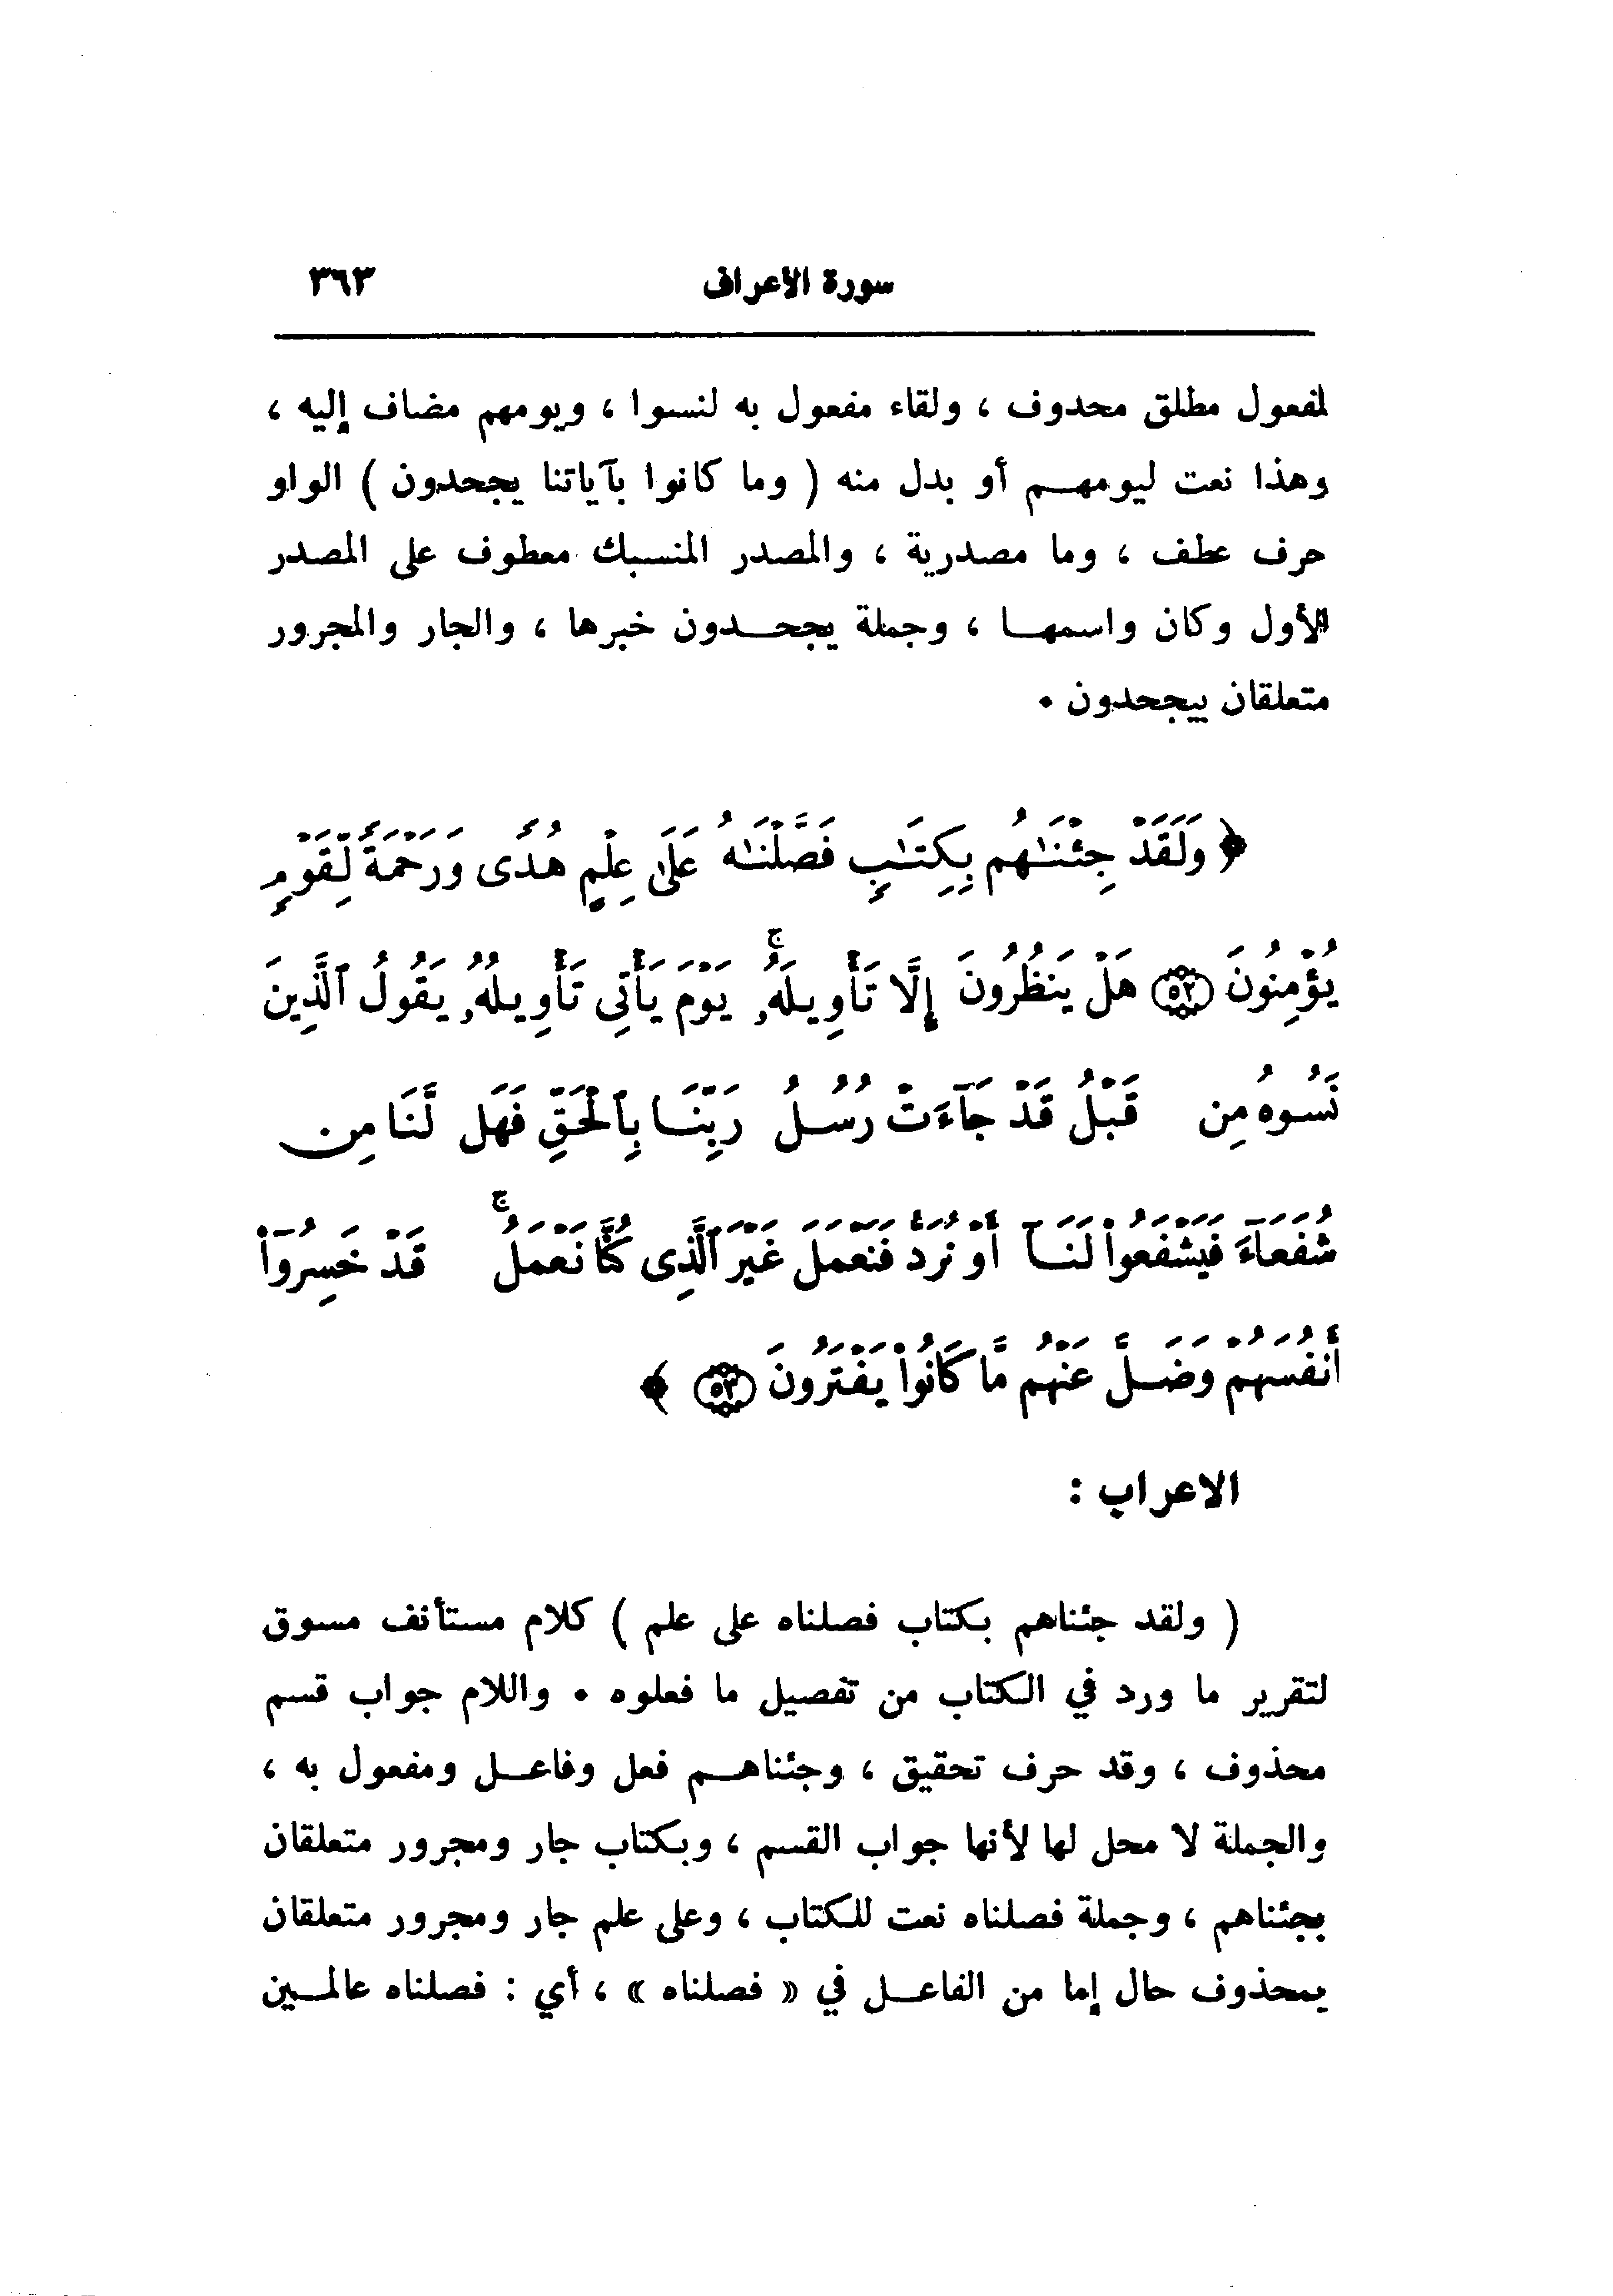 سورة الأعراف ٣٦٣
لمفعول مطلق محدوف ، ولقاء مفعول به لنسوا ، ويومهم مضاف إليه ،
وهذا نعت ليومهم أو بدل منه ( وما كانوا بآياتنا يجحدون ) الواو
حرف عطف ، وما مصدرية ، والمصدر المنسبك معطوف على المصدر
الأول وكان واسمها ، وجملة يجحدون خبرها ، والجار والمجرور
متعلقان بيجحدون .
﴿ وَلَقَدْ جِئْنَٰهُم بِكِتَٰبٍ فَصَّلْنَٰهُ عَلَىٰ عِلْمٍ هُدًى وَرَحْمَةً لِّقَوْمٍ
يُؤْمِنُونَ ۝٥٢ هَلْ يَنظُرُونَ إِلَّا تَأْوِيلَهُۥ ۚ يَوْمَ يَأْتِى تَأْوِيلُهُۥ يَقُولُ ٱلَّذِينَ
نَسُوهُ مِن قَبْلُ قَدْ جَآءَتْ رُسُلُ رَبِّنَا بِٱلْحَقِّ فَهَل لَّنَا مِن
شُفَعَآءَ فَيَشْفَعُوا۟ لَنَآ أَوْ نُرَدُّ فَنَعْمَلَ غَيْرَ ٱلَّذِى كُنَّا نَعْمَلُ ۚ قَدْ خَسِرُوٓا۟
أَنفُسَهُمْ وَضَلَّ عَنْهُم مَّا كَانُوا۟ يَفْتَرُونَ ۝٥٣ ﴾
الاعراب :
( ولقد جئناهم بكتاب فصلناه على علم ) كلام مستأنف مسوق
لتقرير ما ورد في الكتاب من تفصيل ما فعلوه . واللام جواب قسم
محذوف ، وقد حرف تحقيق ، وجئناهم فعل وفاعل ومفعول به ،
والجملة لا محل لها لأنها جواب القسم ، وبكتاب جار ومجرور متعلقان
بجئناهم ، وجملة فصلناه نعت للكتاب ، وعلى علم جار ومجرور متعلقان
بمحذوف حال إما من الفاعل في « فصلناه » ، أي : فصلناه عالمين